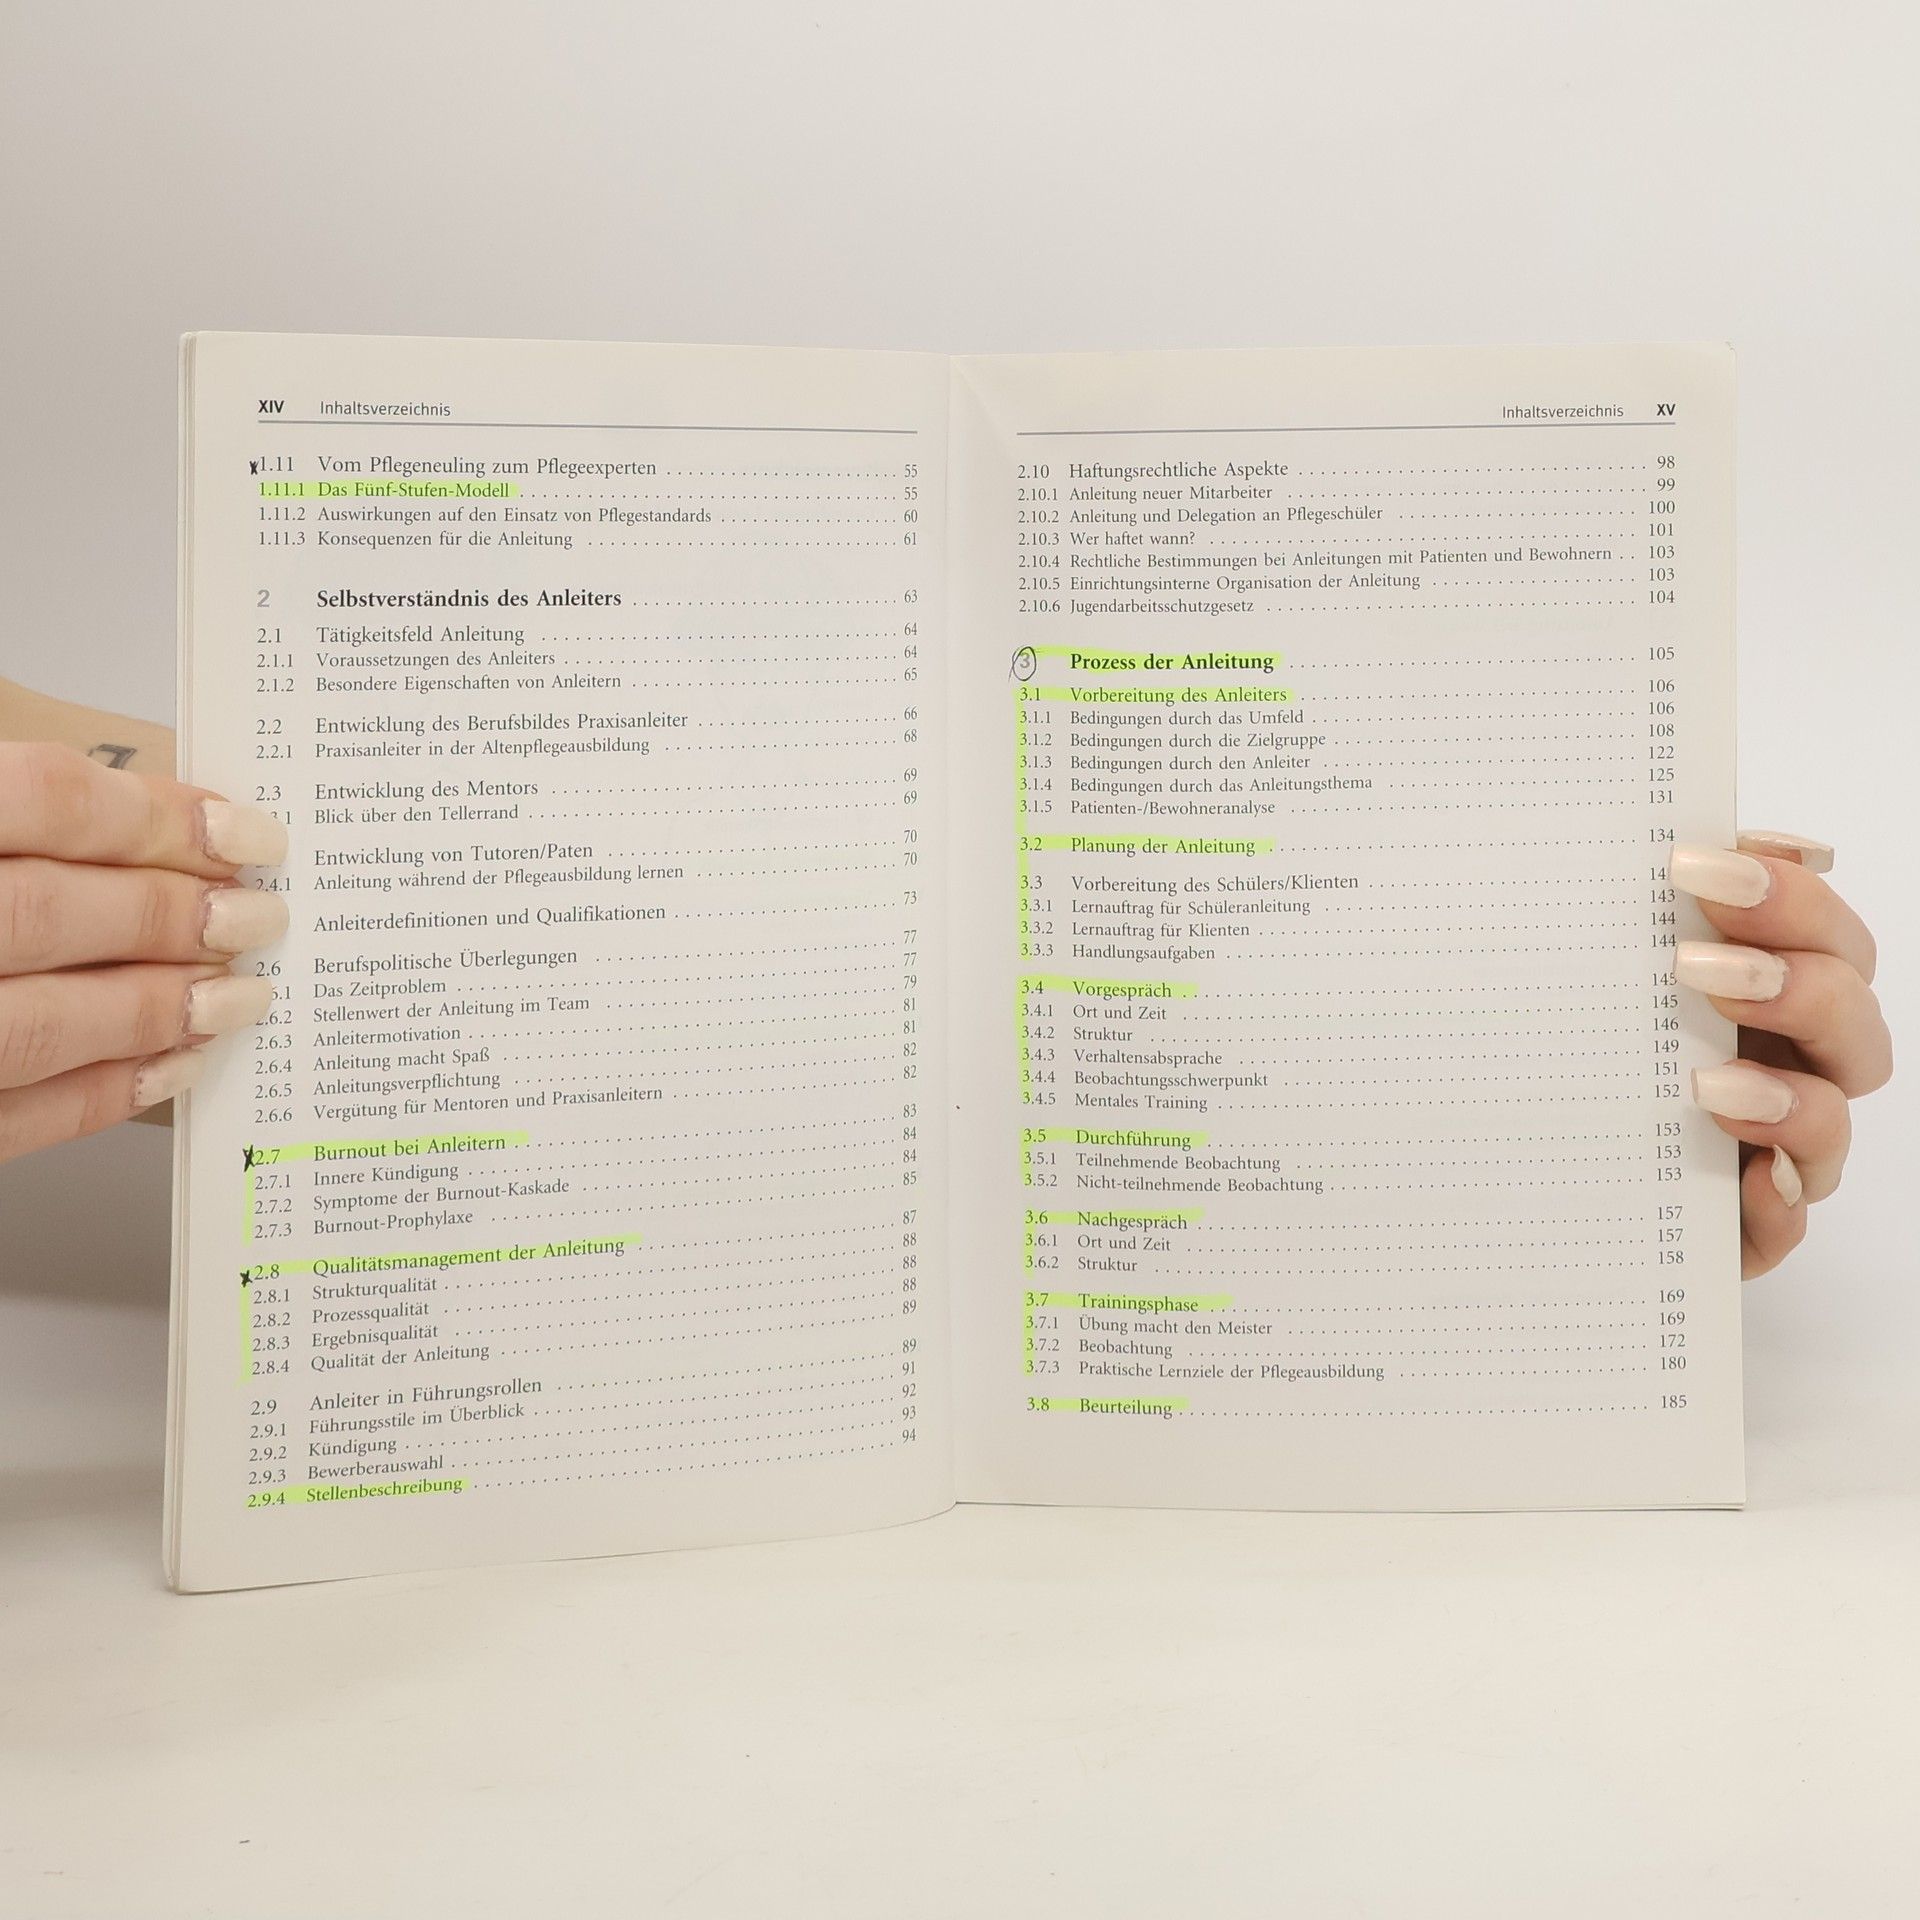 XIV Inhaltsverzeichnis
1.11 Vom Pflegeneuling zum Pflegeexperten 55
1.11.1 Das Fünf-Stufen-Modell 55
1.11.2 Auswirkungen auf den Einsatz von Pflegestandards 60
1.11.3 Konsequenzen für die Anleitung 61
2 Selbstverständnis des Anleiters 63
2.1 Tätigkeitsfeld Anleitung 64
2.1.1 Voraussetzungen des Anleiters 64
2.1.2 Besondere Eigenschaften von Anleitern 65
2.2 Entwicklung des Berufsbildes Praxisanleiter 66
2.2.1 Praxisanleiter in der Altenpflegeausbildung 68
2.3 Entwicklung des Mentors 69
Blick über den Tellerrand 69
Entwicklung von Tutoren/Paten 70
2.4.1 Anleitung während der Pflegeausbildung lernen 70
Anleiterdefinitionen und Qualifikationen 73
2.6 Berufspolitische Überlegungen 77
Das Zeitproblem 77
2.6.2 Stellenwert der Anleitung im Team 79
2.6.3 Anleitermotivation 81
2.6.4 Anleitung macht Spaß 81
2.6.5 Anleitungsverpflichtung 82
2.6.6 Vergütung für Mentoren und Praxisanleitern 82
2.7 Burnout bei Anleitern 83
2.7.1 Innere Kündigung 84
2.7.2 Symptome der Burnout-Kaskade 84
2.7.3 Burnout-Prophylaxe 85
2.8 Qualitätsmanagement der Anleitung 87
2.8.1 Strukturqualität 88
2.8.2 Prozessqualität 88
2.8.3 Ergebnisqualität 88
2.8.4 Qualität der Anleitung 89
2.9 Anleiter in Führungsrollen 89
2.9.1 Führungsstile im Überblick 91
2.9.2 Kündigung 92
2.9.3 Bewerberauswahl 93
2.9.4 Stellenbeschreibung 94
Inhaltsverzeichnis XV
2.10 Haftungsrechtliche Aspekte 98
2.10.1 Anleitung neuer Mitarbeiter 99
2.10.2 Anleitung und Delegation an Pflegeschüler 100
2.10.3 Wer haftet wann? 101
2.10.4 Rechtliche Bestimmungen bei Anleitungen mit Patienten und Bewohnern 103
2.10.5 Einrichtungsinterne Organisation der Anleitung 103
2.10.6 Jugendarbeitsschutzgesetz 104
3 Prozess der Anleitung 105
3.1 Vorbereitung des Anleiters 106
3.1.1 Bedingungen durch das Umfeld 106
3.1.2 Bedingungen durch die Zielgruppe 108
3.1.3 Bedingungen durch den Anleiter 122
3.1.4 Bedingungen durch das Anleitungsthema 125
3.1.5 Patienten-/Bewohneranalyse 131
3.2 Planung der Anleitung 134
3.3 Vorbereitung des Schülers/Klienten
3.3.1 Lernauftrag für Schüleranleitung 143
3.3.2 Lernauftrag für Klienten 144
3.3.3 Handlungsaufgaben 144
3.4 Vorgespräch 145
3.4.1 Ort und Zeit 145
3.4.2 Struktur 146
3.4.3 Verhaltensabsprache 149
3.4.4 Beobachtungsschwerpunkt 151
3.4.5 Mentales Training 152
3.5 Durchführung 153
3.5.1 Teilnehmende Beobachtung 153
3.5.2 Nicht-teilnehmende Beobachtung 153
3.6 Nachgespräch 157
3.6.1 Ort und Zeit 157
3.6.2 Struktur 158
3.7 Trainingsphase 169
3.7.1 Übung macht den Meister 169
3.7.2 Beobachtung 172
3.7.3 Praktische Lernziele der Pflegeausbildung 180
3.8 Beurteilung 185